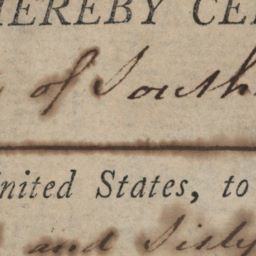 HEREBY CE
of South
United States, to
and Sixty